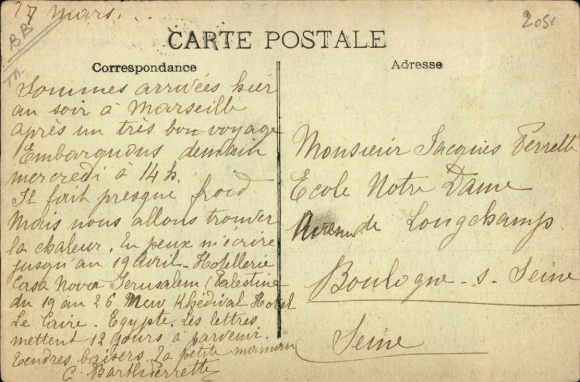 27 mars.
BB
2051
CARTE POSTALE
Correspondance
Adresse
Sommes arrivées hier
au soir à Marseille
après un très bon voyage
Embarquons demain
mercredi à 14 h.
Il fait presque froid
Mais nous allons trouver
la chaleur. Tu peux m'écrire
jusqu'au 19 avril. Hotellerie
Casa Nova Jerusalem (Palestine
du 19 au 26 Mew Khédival Hotel
Le Caire. Egypte. Les lettres
mettent 12 jours à parvenir.
Tendres baisers. La petite maman
Monsieur Jacques Perrette
Ecole Notre Dame
Avenue de Longchamp
Boulogne-s-Seine
Seine